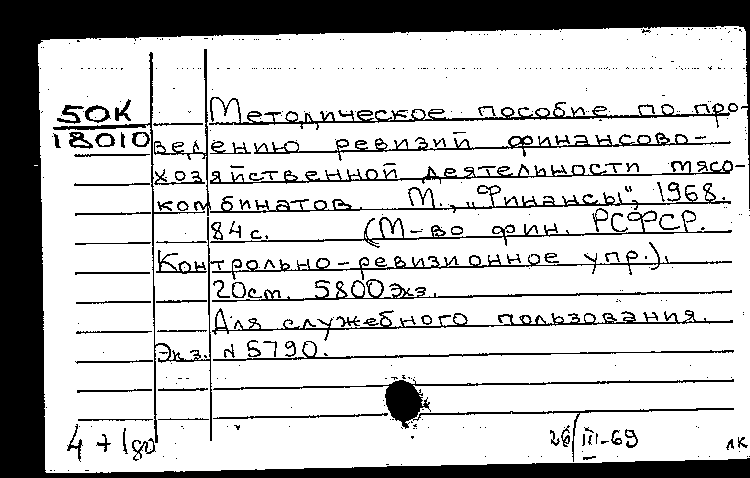 50К
18010
Методическое пособие по про-
ведению ревизий финансово-
хозяйственной деятельности мясо-
комбинатов. М., „Финансы", 1968.
84 с. (М-во фин. РСФСР.
Контрольно-ревизионное упр.).
20 см. 5800 экз.
Для служебного пользования.
Экз. N 5790.
4 + 180
26/III-69
лк